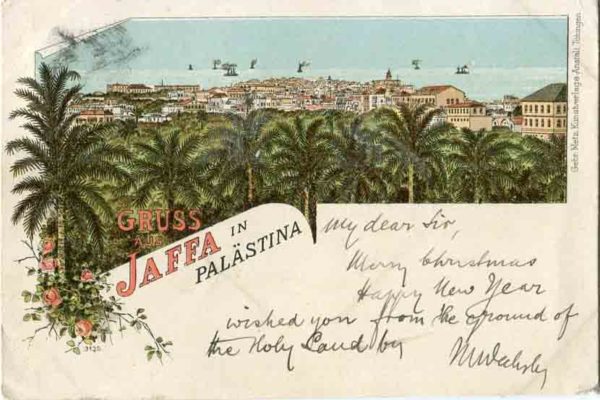 GRUSS
AUS
JAFFA IN
PALÄSTINA
My dear Sir,
Merry Christmas
Happy New Year
wished you from the ground of
the Holy Land by
3125
Gebr. Metz, Kunstverlags-Anstalt, Tübingen